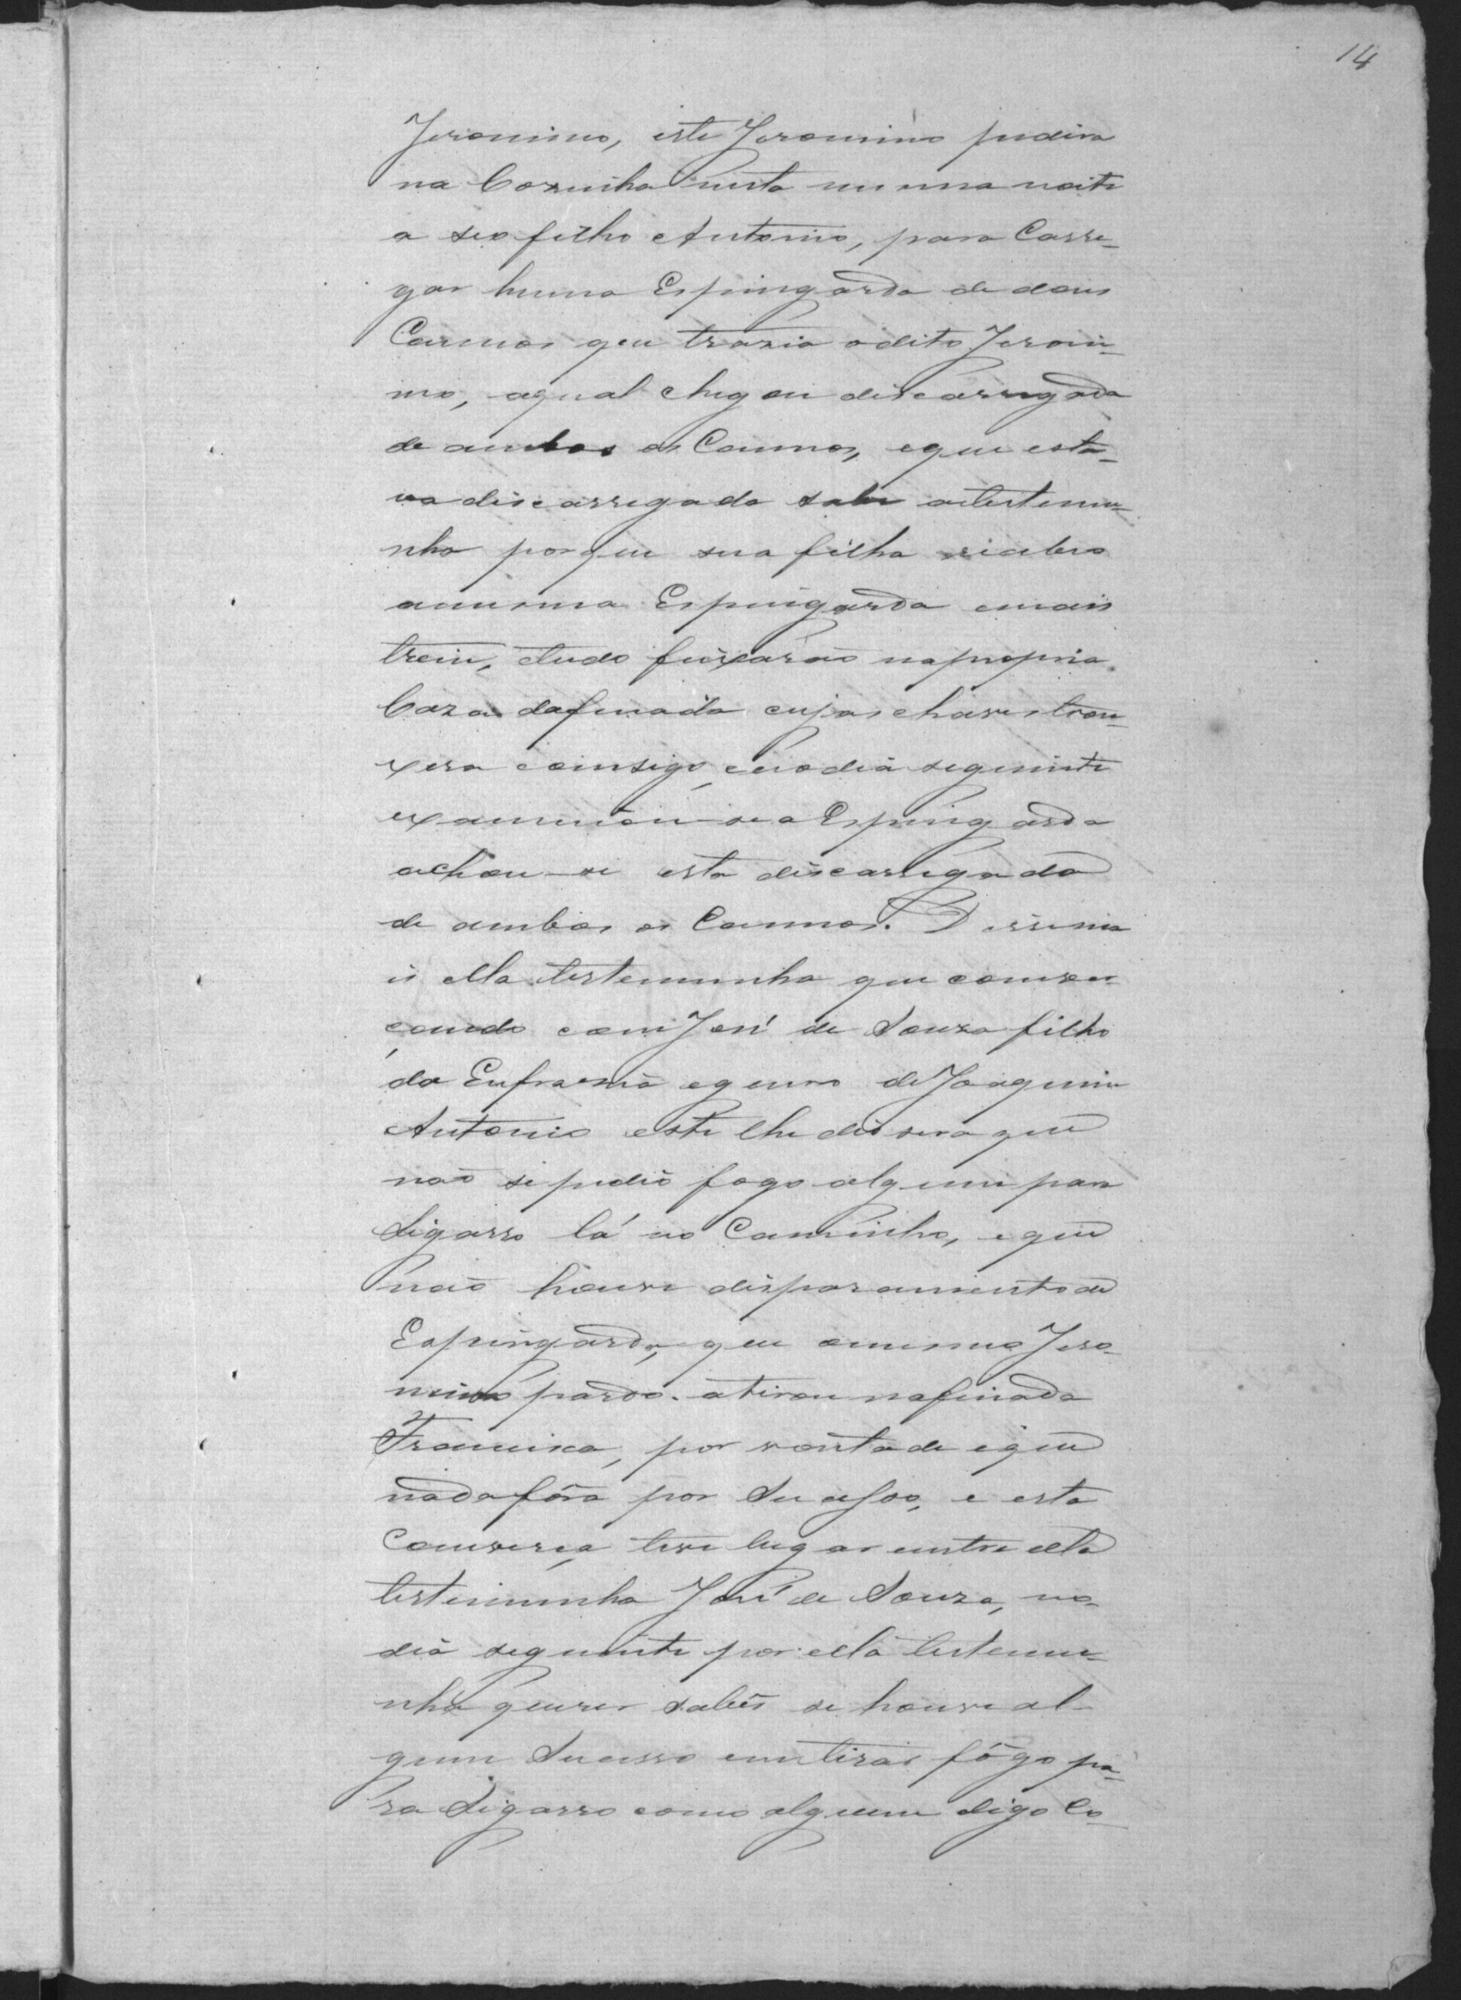 14
Jeronimo, este Jeronimo pedira
na Cozinha nesta mesma noite
a seo filho Antonio, para Carre-
gar huma Espingarda de dous
Cannos que trazia o dito Jeroni-
mo, aqual chegou discarregada
de ambos os Cannos, eque esta-
va discarregada sabe atestemu-
nha porque sua filha
amesma Espingarda emais
trem, etudo ficarão napropria
Caza dafinada cujas chaves trou-
xera comsigo, enodia seguinte
examinou-se a Espingarda
achou-se esta discarregada
de ambos os Cannos. Disse ma
is ella testemunha que conver-
çando com José de Souza filho
da Eufrasia egenro de Joaquim
Antonio este lhe dissera que
não se pedio fogo algum para
Sigarro lá no Caminho, e que
não houve disparamento de
Espingarda, que omesmo Jero-
nimo pardo atirou nafinada
Francisca, por vontade eque
nada fôra por Sucesso, e esta
Converça teve lugar entre ella
testemunha José de Souza, no
dia seguinte por ella testemu-
nha querer saber se houve al-
gum Sucesso emtirar fôgo pa-
ra Sigarro como alguem digo Co-